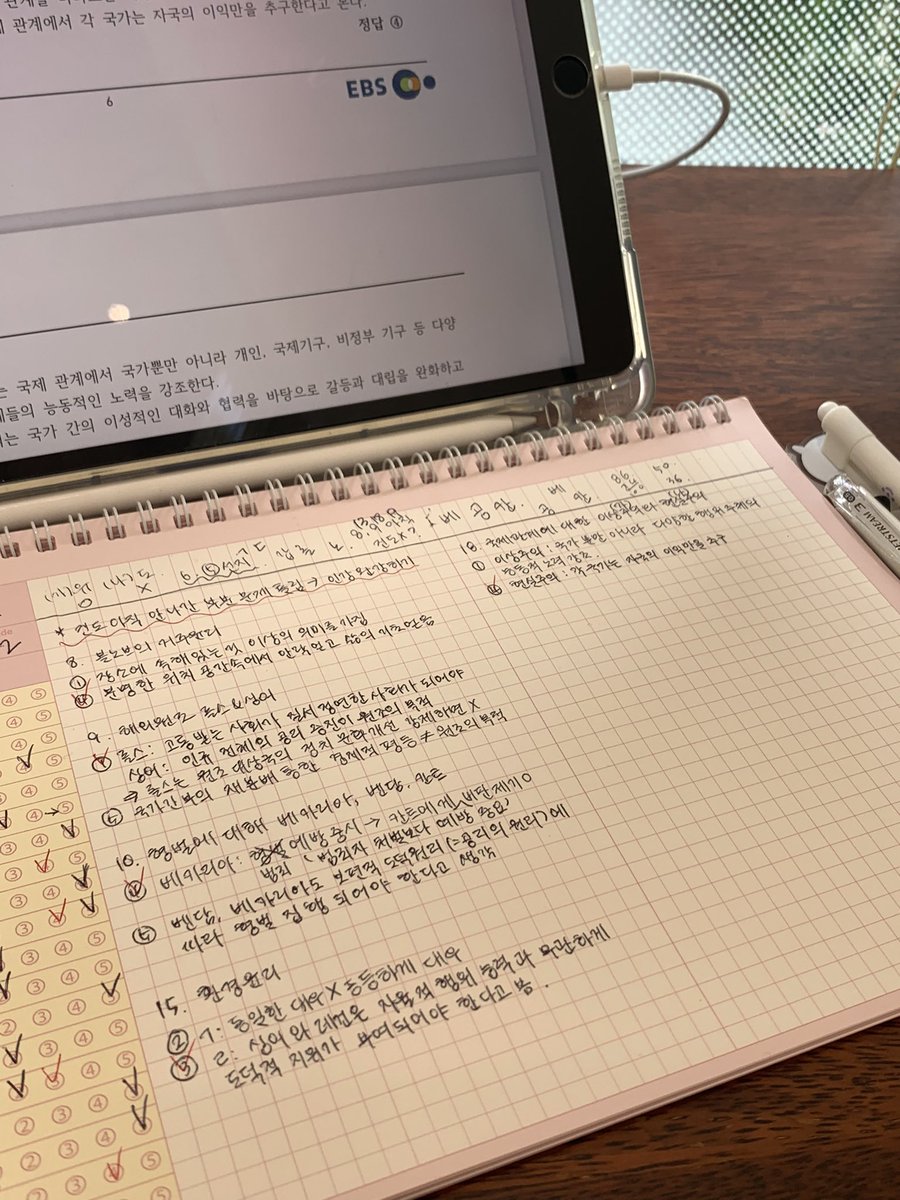 관계에서 각 국가는 자국의 이익만을 추구한다고 본다.
정답 ④
6
EBS
는 국제 관계에서 국가뿐만 아니라 개인, 국제기구, 비정부 기구 등 다양
체들의 능동적인 노력을 강조한다.
는 국가 간의 이성적인 대화와 협력을 바탕으로 갈등과 대립을 완화하고
* 건도 아직 안나간 부분 문제 틀림 → 인강 완강하기
8. 볼노브의 거주윤리
① 장소에 속해있는 것 이상의 의미를 가짐
④ 분명한 위치 공간속에서 안락하고 삶의 기초 얻음
9. 해외원조 롤스&싱어
④ 롤스: 고통받는 사회가 질서 정연한 사회가 되어야
싱어: 인류 전체의 공리 증진이 원조의 목적
→ 롤스는 원조 대상국의 정치 문화개선 강제하면 X
⑤ 국가간 부의 재분배 통한 경제적 평등 ≠ 원조의 목적
10. 형벌에 대해 베카리아, 벤담, 칸트
④ 베카리아: 범죄 예방 중시 → 칸트에게 비판 제기 O
범죄자 처벌보다 예방 중요
⑤ 벤담, 베카리아도 보편적 도덕원리(=공리의 원리)에
따라 형벌 집행 되어야 한다고 생각
15. 환경윤리
② ㄱ: 동일한 대우 X 동등하게 대우
③ ㄹ: 싱어와 레건은 자율적 행위 능력과 무관하게
도덕적 지위가 부여되어야 한다고 봄.
18. 국제관계에 대한 이상주의와 현실주의
① 이상주의: 국가 뿐만 아니라 다양한 행위 주체의
능동적 노력 강조
④ 현실주의: 각 국가는 자국의 이익만을 추구